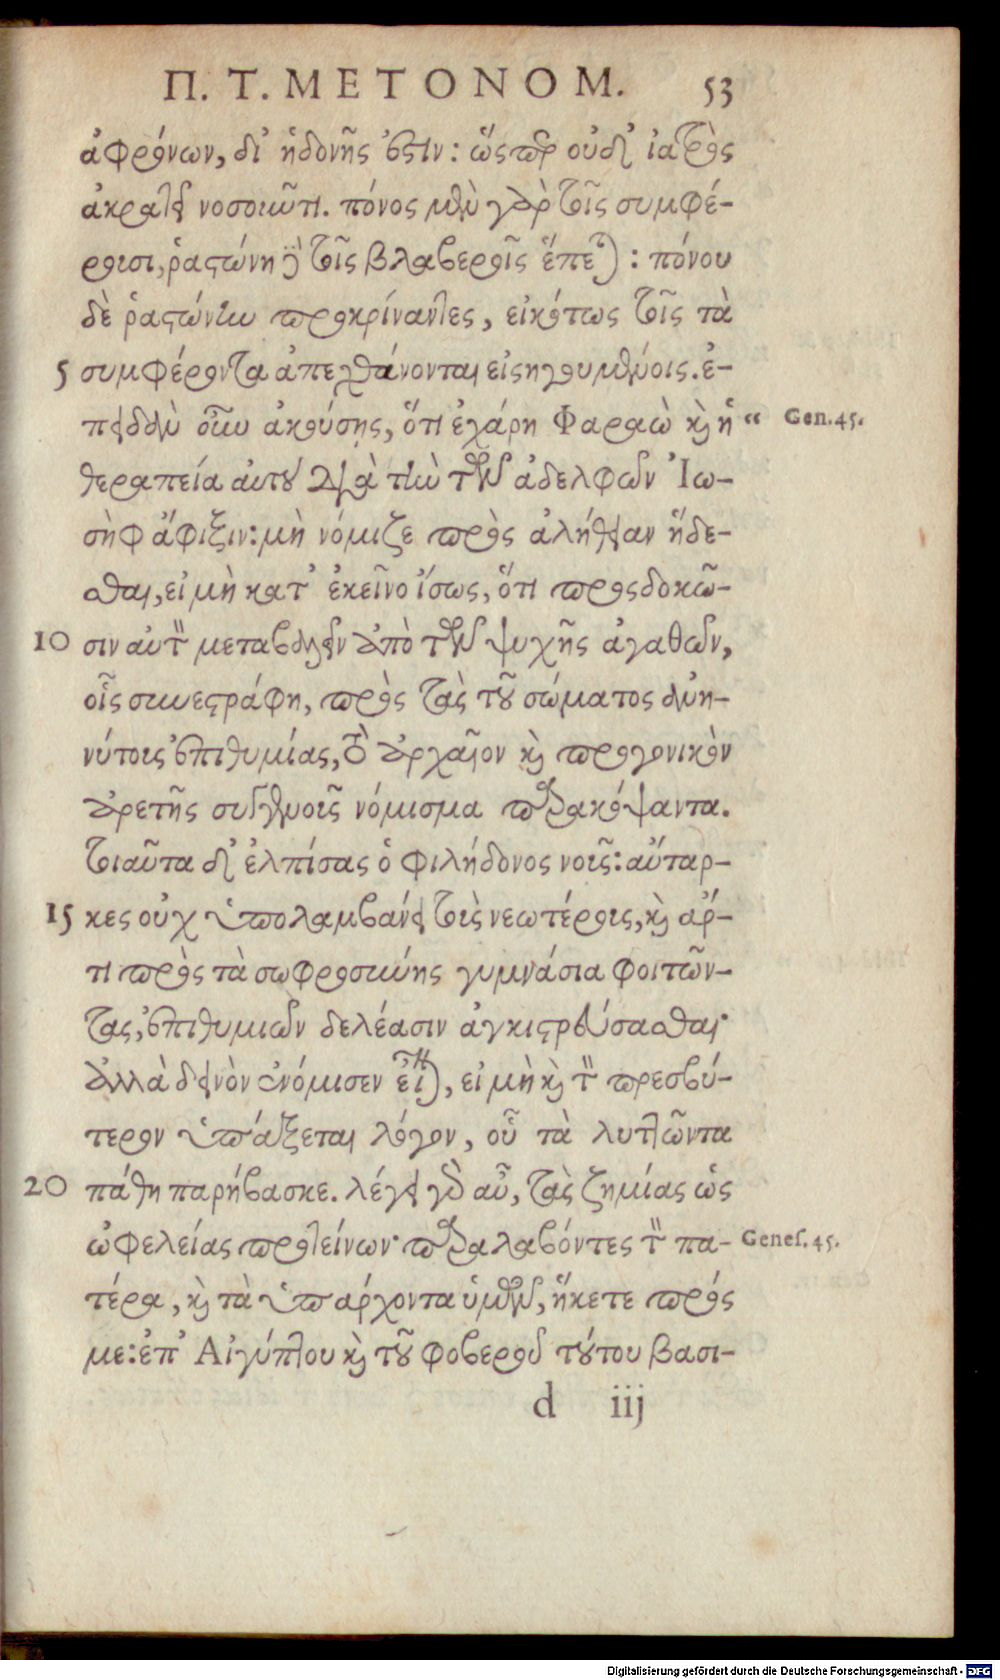 Π. Τ. ΜΕΤΟΝΟΜ. 53
ἀφρόνων, δι' ἡδονῆς ἐστίν: ὥςπερ οὐδ' ἰατρὸς
ἀκρατεῖ νοσοιῶτι. πόνος μὲν γὰρ τοῖς συμφέ-
ρουσι, ῥαςώνη δὲ τοῖς βλαβεροῖς ἕπεται: πόνου
δὲ ῥαςώνην προκρίναντες, εἰκότως τοῖς τὰ
5 συμφέροντα ἀπεχθάνονται εἰςηγουμένοις. ἐ-
πειδὰν οὖν ἀκούσῃς, ὅτι ἐχάρη Φαραὼ καὶ ἡ “ Gen. 45.
θεραπεία αὐτοῦ διὰ τὴν τῶν ἀδελφῶν Ἰω-
σὴφ ἄφιξιν: μὴ νόμιζε πρὸς ἀλήθειαν ἥδε-
σθαι, εἰ μὴ κατ' ἐκεῖνο ἴσως, ὅτι προςδοκῶ-
10 σιν αὐτὸν μεταβαλεῖν ἀπὸ τῶν ψυχῆς ἀγαθῶν,
οἷς συνεςράφη, πρὸς τὰς τοῦ σώματος ἀνη-
νύτοις ἐπιθυμίας, τὸ ἀρχαῖον καὶ προγονικὸν
ἀρετῆς συγγενοῖς νόμισμα παρακόψαντα.
τοιαῦτα δ' ἐλπίσας ὁ φιλήδονος νοῖς: αὔταρ-
15 κες οὐχ ὑπολαμβάνει τοὺς νεωτέροις, καὶ ἄρ-
τι πρὸς τὰ σωφροσύνης γυμνάσια φοιτῶν-
τας, ἐπιθυμιῶν δελέασιν ἀγκιςρεύσασθαι·
ἀλλὰ δεινὸν ἐνόμισεν εἶναι, εἰ μὴ καὶ τὸν πρεσβύ-
τερον ὑπάξεται λόγον, οὗ τὰ λυττῶντα
20 πάθη παρήβασκε. λέγει γὰρ αὖ, τὰς ζημίας ὡς
ὠφελείας προτείνων· παραλαβόντες τὸν πα- Genes. 45.
τέρα, καὶ τὰ ὑπάρχοντα ὑμῶν, ἥκετε πρός
με: ἐπ' Αἰγύπτου καὶ τοῦ φοβεροῦ τούτου βασι-
d iij
Digitalisierung gefördert durch die Deutsche Forschungsgemeinschaft - DFG